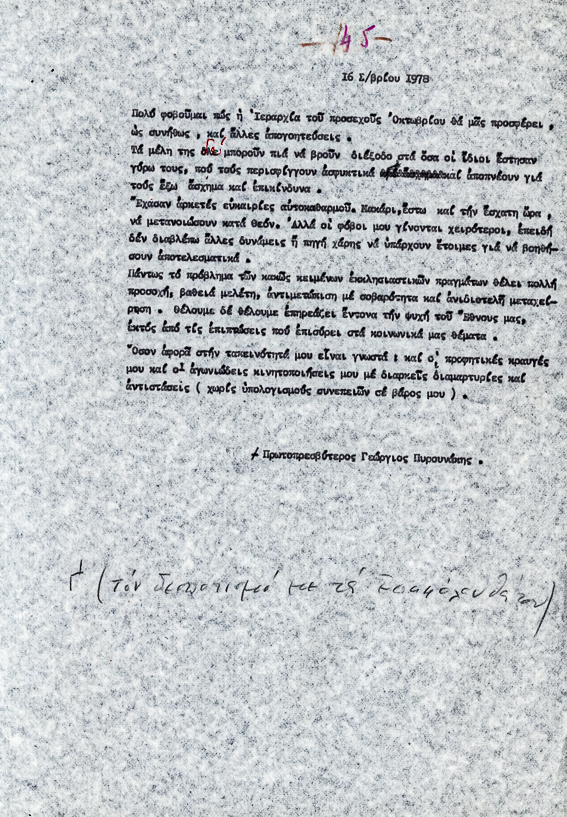 — 45 —
16 Σ/βρίου 1978
Πολύ φοβοῦμαι πώς ἡ Ἱεραρχία τοῦ προσεχοῦς Ὀκτωβρίου θά μᾶς προσφέρει ,
ὡς συνήθως , καί ἄλλες ἀπογοητεύσεις .
Τά μέλη της δέ μποροῦν πιά νά βροῦν διέξοδο στά ὅσα οἱ ἴδιοι ἔστησαν
γύρω τους, πού τούς περισφίγγουν ἀσφυκτικά καί ἀποπνέουν γιά
τούς ἔξω ἄσχημα καί ἐπικίνδυνα .
Ἔχασαν ἀρκετές εὐκαιρίες αὐτοκαθαρμοῦ. Μακάρι,ἔστω καί τήν ἔσχατη ὥρα ,
νά μετανοιώσουν κατά Θεόν. Ἀλλά οἱ φόβοι μου γίνονται χειρότεροι, ἐπειδή
δέν διαβλέπω ἄλλες δυνάμεις ἤ πηγή χάρης νά ὑπάρχουν ἕτοιμες γιά νά βοηθή-
σουν ἀποτελεσματικά .
Πάντως τό πρόβλημα τῶν κακῶς κειμένων ἐκκλησιαστικῶν πραγμάτων θέλει πολλή
προσοχή, βαθειά μελέτη, ἀντιμετώπιση μέ σοβαρότητα καί ἀνιδιοτελῆ μεταχεί-
ρηση . Θέλουμε δέ θέλουμε ἐπηρεάζει ἔντονα τήν ψυχή τοῦ Ἔθνους μας,
ἐκτός ἀπό τίς ἐπιπτώσεις πού ἐπισύρει στά κοινωνικά μας θέματα .
Ὅσον ἀφορᾶ στήν ταπεινότητά μου εἶναι γνωστά : καί οἱ προφητικές κραυγές
μου καί οἱ ἀγωνιώδεις κινητοποιήσεις μου μέ διαρκεῖς διαμαρτυρίες καί
ἀντιστάσεις ( χωρίς ὑπολογισμούς συνεπειῶν σέ βάρος μου ) .
+ Πρωτοπρεσβύτερος Γεώργιος Πυρουνάκης .
(τόν δεσποτισμό καί τά ἐπακόλουθά του)